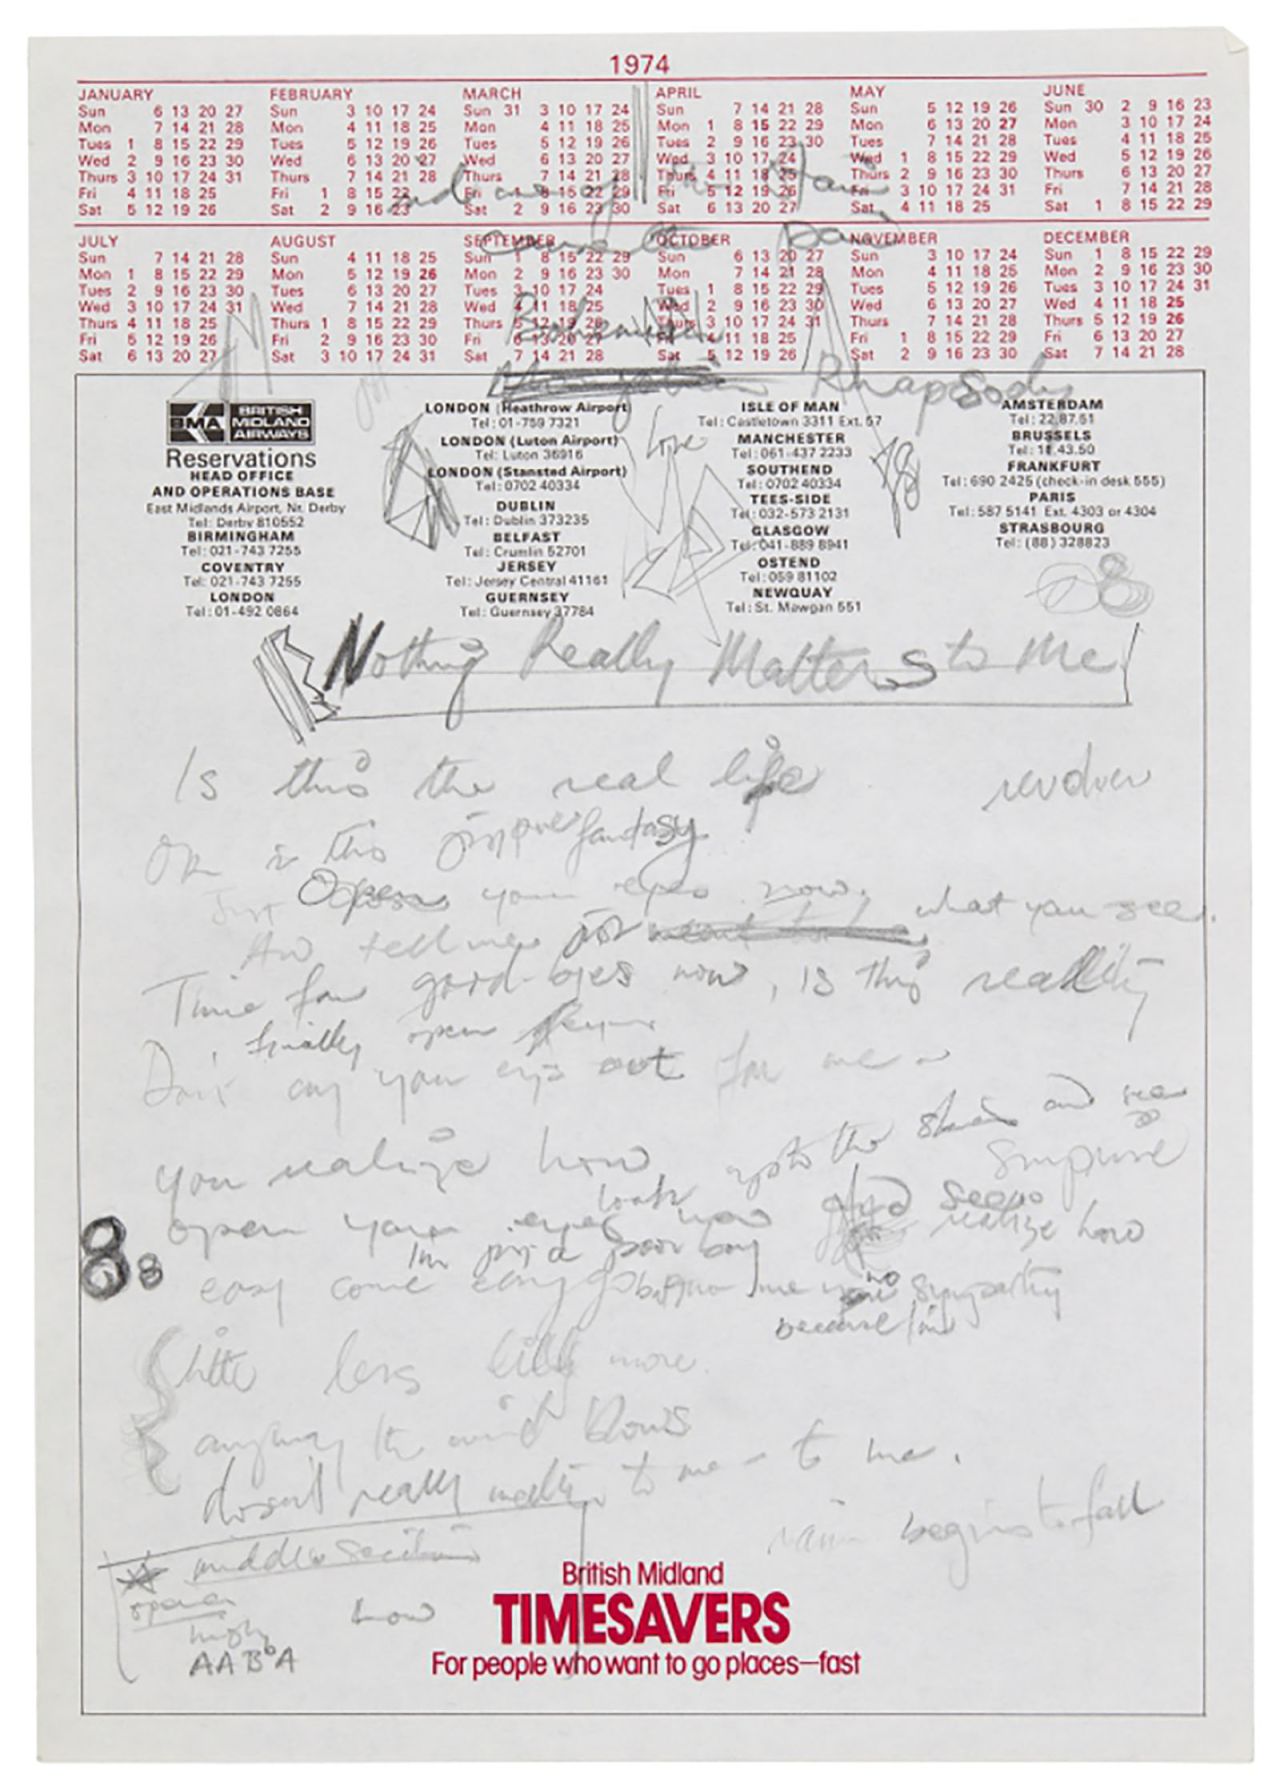 1974
JANUARY
Sun 6 13 20 27
Mon 7 14 21 28
Tues 1 8 15 22 29
Wed 2 9 16 23 30
Thurs 3 10 17 24 31
Fri 4 11 18 25
Sat 5 12 19 26
FEBRUARY
Sun 3 10 17 24
Mon 4 11 18 25
Tues 5 12 19 26
Wed 6 13 20 27
Thurs 7 14 21 28
Fri 1 8 15 22
Sat 2 9 16 23
MARCH
Sun 31 3 10 17 24
Mon 4 11 18 25
Tues 5 12 19 26
Wed 6 13 20 27
Thurs 7 14 21 28
Fri 1 8 15 22 29
Sat 2 9 16 23 30
APRIL
Sun 7 14 21 28
Mon 1 8 15 22 29
Tues 2 9 16 23 30
Wed 3 10 17 24
Thurs 4 11 18 25
Fri 5 12 19 26
Sat 6 13 20 27
MAY
Sun 5 12 19 26
Mon 6 13 20 27
Tues 7 14 21 28
Wed 1 8 15 22 29
Thurs 2 9 16 23 30
Fri 3 10 17 24 31
Sat 4 11 18 25
JUNE
Sun 30 2 9 16 23
Mon 3 10 17 24
Tues 4 11 18 25
Wed 5 12 19 26
Thurs 6 13 20 27
Fri 7 14 21 28
Sat 1 8 15 22 29
JULY
Sun 7 14 21 28
Mon 1 8 15 22 29
Tues 2 9 16 23 30
Wed 3 10 17 24 31
Thurs 4 11 18 25
Fri 5 12 19 26
Sat 6 13 20 27
AUGUST
Sun 4 11 18 25
Mon 5 12 19 26
Tues 6 13 20 27
Wed 7 14 21 28
Thurs 1 8 15 22 29
Fri 2 9 16 23 30
Sat 3 10 17 24 31
SEPTEMBER
Sun 1 8 15 22 29
Mon 2 9 16 23 30
Tues 3 10 17 24
Wed 4 11 18 25
Thurs 5 12 19 26
Fri 6 13 20 27
Sat 7 14 21 28
OCTOBER
Sun 6 13 20 27
Mon 7 14 21 28
Tues 1 8 15 22 29
Wed 2 9 16 23 30
Thurs 3 10 17 24 31
Fri 4 11 18 25
Sat 5 12 19 26
NOVEMBER
Sun 3 10 17 24
Mon 4 11 18 25
Tues 5 12 19 26
Wed 6 13 20 27
Thurs 7 14 21 28
Fri 1 8 15 22 29
Sat 2 9 16 23 30
DECEMBER
Sun 1 8 15 22 29
Mon 2 9 16 23 30
Tues 3 10 17 24 31
Wed 4 11 18 25
Thurs 5 12 19 26
Fri 6 13 20 27
Sat 7 14 21 28
Bohemian
Mongolian Rhapsody
BMA BRITISH MIDLAND AIRWAYS
Reservations
HEAD OFFICE
AND OPERATIONS BASE
East Midlands Airport, Nr. Derby
Tel: Derby 810552
BIRMINGHAM
Tel: 021-743 7255
COVENTRY
Tel: 021-743 7255
LONDON
Tel: 01-492 0864
LONDON (Heathrow Airport)
Tel: 01-759 7321
LONDON (Luton Airport)
Tel: Luton 36916
LONDON (Stansted Airport)
Tel: 0702 40334
DUBLIN
Tel: Dublin 373235
BELFAST
Tel: Crumlin 52701
JERSEY
Tel: Jersey Central 41161
GUERNSEY
Tel: Guernsey 37784
Love
ISLE OF MAN
Tel: Castletown 3311 Ext. 57
MANCHESTER
Tel: 061-437 2233
SOUTHEND
Tel: 0702 40334
TEES-SIDE
Tel: 032-573 2131
GLASGOW
Tel: 041-889 8941
OSTEND
Tel: 059 81102
NEWQUAY
Tel: St. Mawgan 551
AMSTERDAM
Tel: 22.87.51
BRUSSELS
Tel: 18.43.50
FRANKFURT
Tel: 690 2425 (check-in desk 555)
PARIS
Tel: 587 5141 Ext. 4303 or 4304
STRASBOURG
Tel: (88) 328823
Nothing Really Matters to Me
Is this the real life revolver
Or is this fantasy
Just Open your eyes now, what you see.
And tell me
Time for good-byes now, is this reality
finally open
Don't cry your eyes out for me
up to the skies and see
you realize how surprise
look
open your eyes now realize how
I'm just a poor boy
easy come easy go sympathy
because I'm
little less little more.
anyway the wind blows
doesn't really matter to me - to me.
rain begins to fall
middle section
opera
how
high
AABA
88
British Midland
TIMESAVERS
For people who want to go places—fast